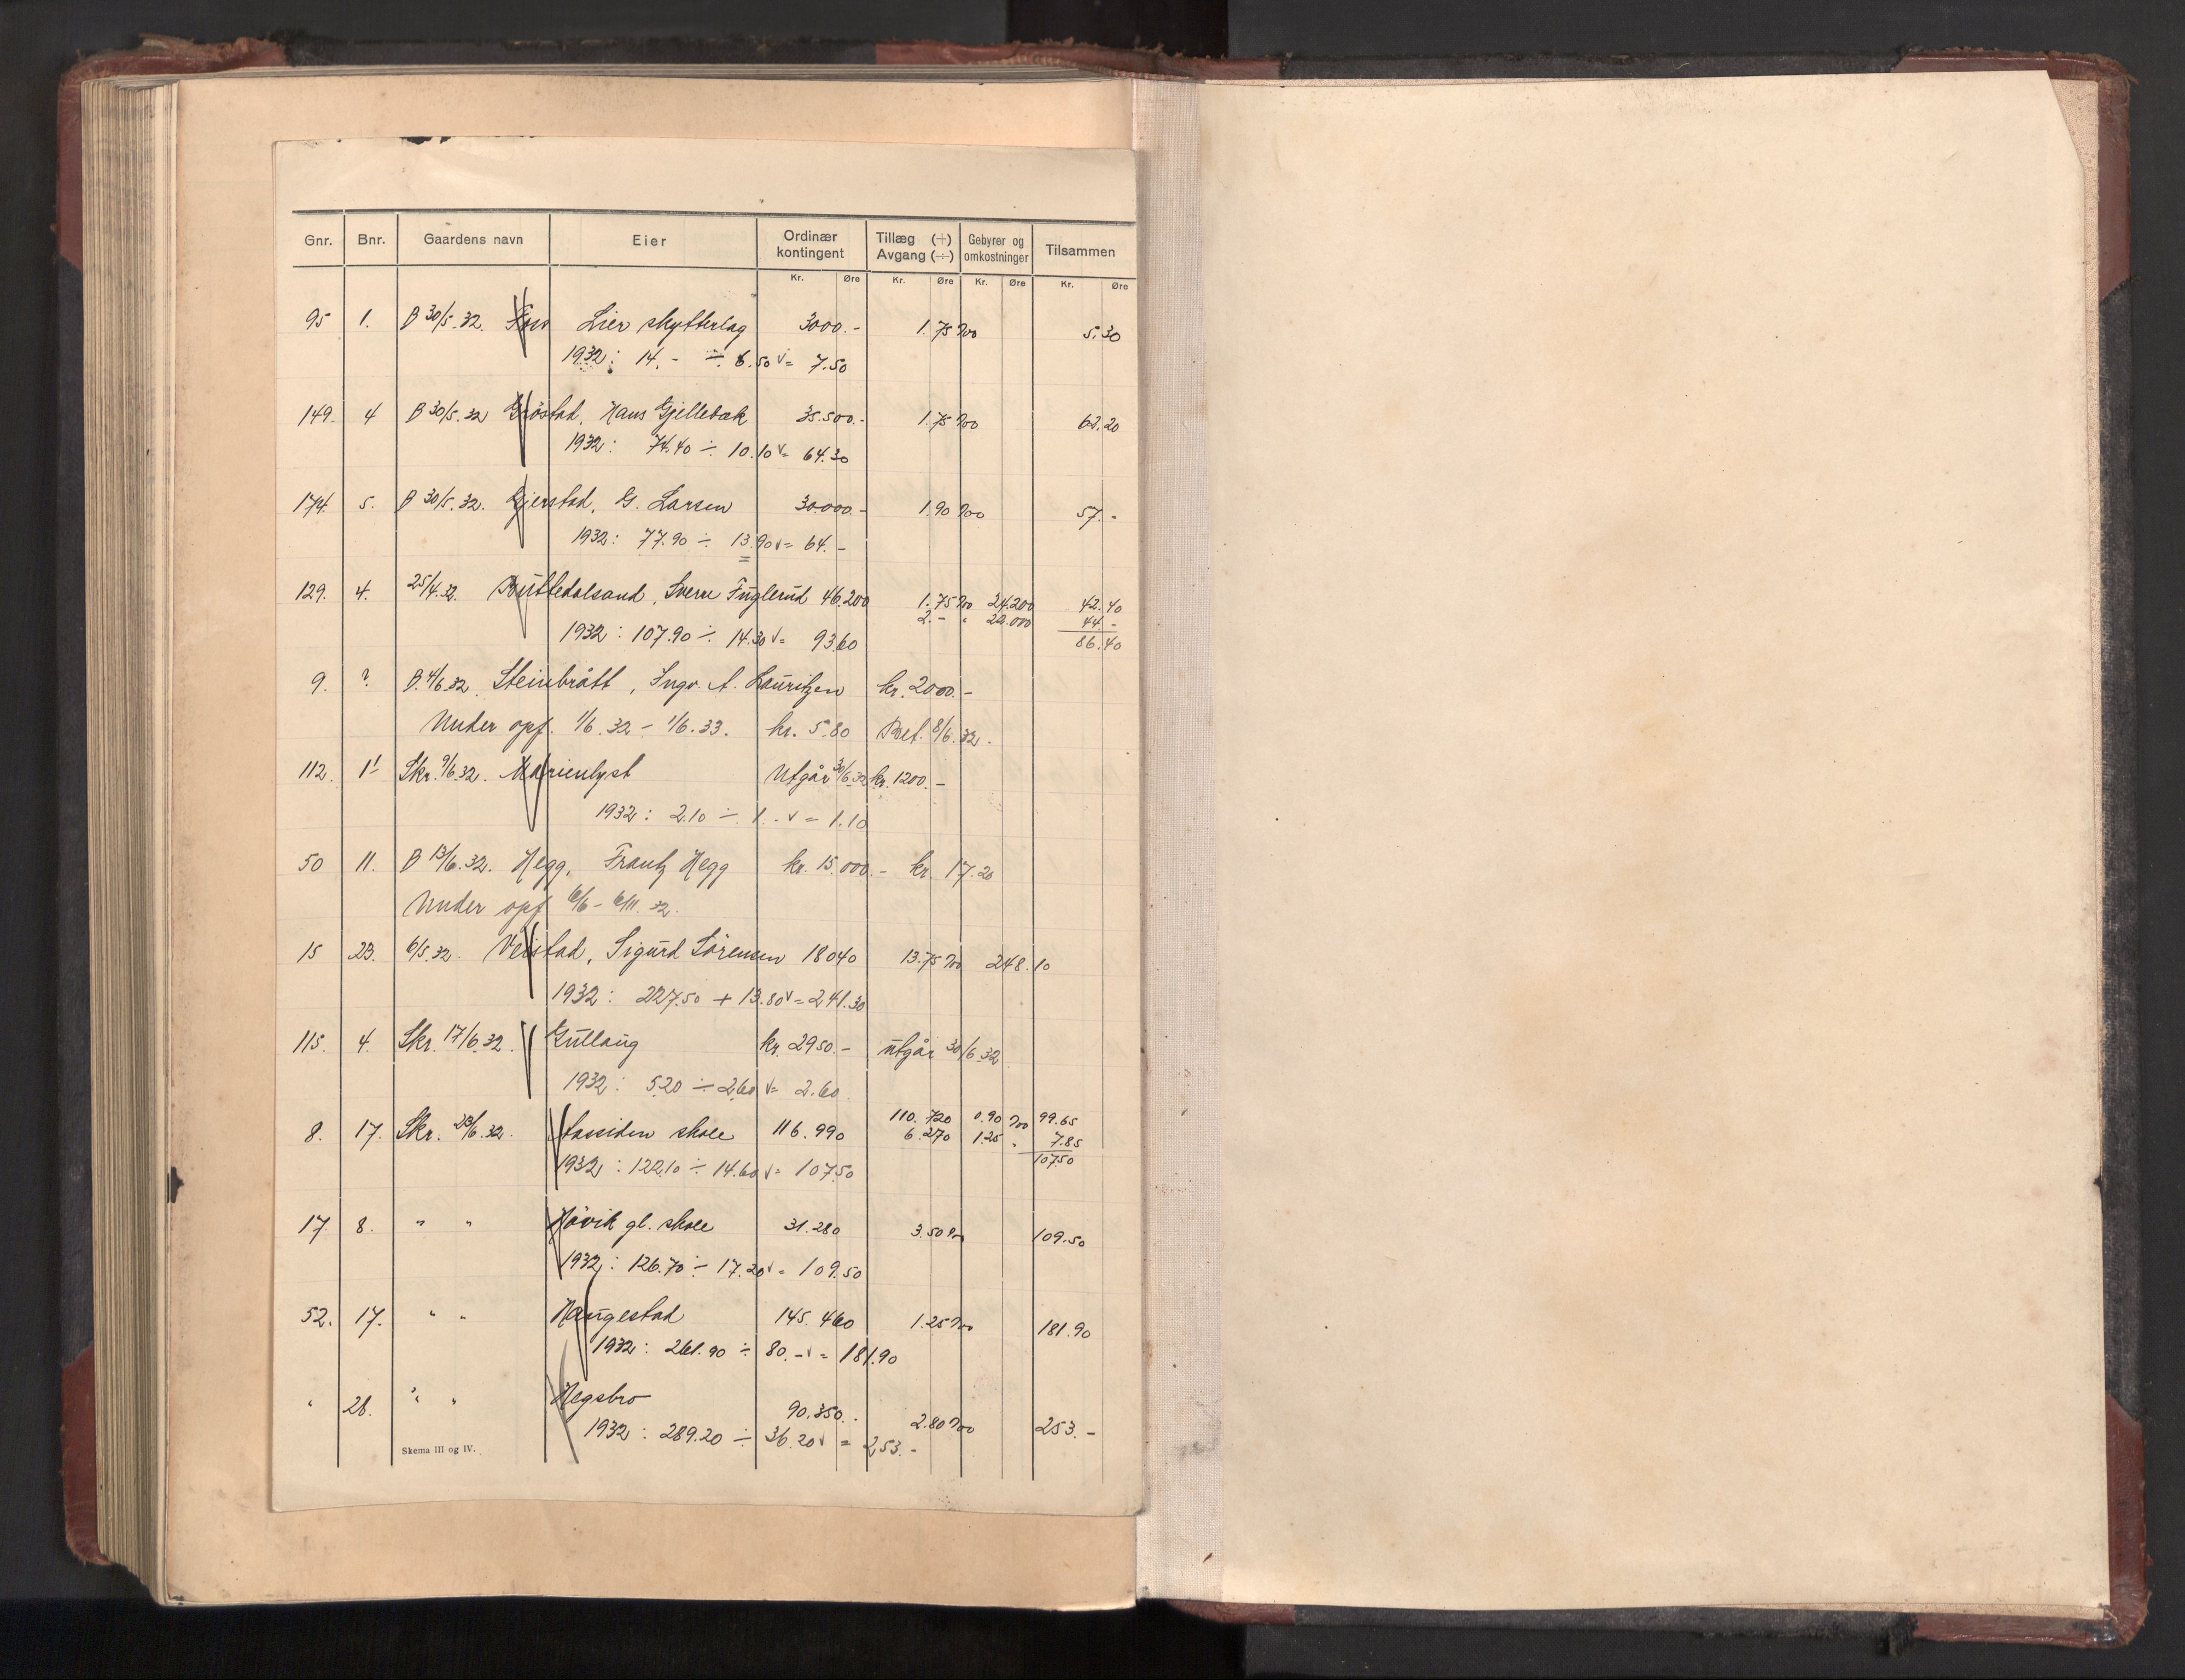 Gnr. Bnr. Gaardens navn Eier Ordinær kontingent Tillæg (+) Avgang (÷) Gebyrer og omkostninger Tilsammen
Kr. Øre Kr. Øre Kr. Øre Kr. Øre
95 1. B 30/5.32. Lier skytterlag 3000.- 1.75 ‰ 5.30
1932: 14.- ÷ 6.50 v = 7.50
149. 4 B 30/5.32 Gröstad, Hans Gjellebæk 35.500.- 1.75 ‰ 62.20
1932: 74.40 ÷ 10.10 v = 64.30
174. 5. B 30/5.32. Gjerstad, G. Larsen 30.000.- 1.90 ‰ 57.-
1932: 77.90 ÷ 13.90 v = 64.-
129. 4. 25/4.32. Buttedalsand, Sverre Fuglerud 46.200 1.75 ‰ 24.200 42.40
2.- " 22.000 44.-
1932: 107.90 ÷ 14.30 v = 93.60 86.40
9. ? B. 4/6.32. Steinbrått, Ingv. A. Lauritzen kr. 2000.-
Under opf. 1/6.32 - 1/6.33. kr. 5.80 Bet. 8/6.32.
112. 11 Skr. 9/6.32. Marienlyst Utgår 30/6.32 kr. 1200.-
1932: 2.10 ÷ 1.- v = 1.10
50 11. B 13/6.32. Hegg, Frantz Hegg kr. 15.000.- kr. 17.20
Under opf 6/6 - 6/11.32.
15 23. 6/5.32. Veistad, Sigurd Sörensen 18040 13.75 ‰ 248.10
1932: 227.50 + 13.80 v = 241.30
115. 4. Skr. 17/6.32. Gullaug kr. 2950.- utgår 30/6.32
1932: 5.20 ÷ 2.60 v = 2.60
8. 17. Skr. 23/6.32. Stassiden skole 116.990 110.720 0.90 ‰ 99.65
6.270 1.25 " 7.85
1932: 122.10 ÷ 14.60 v = 107.50 107.50
17 8. " " Hövik gl. skole 31.280 3.50 ‰ 109.50
1932: 126.70 ÷ 17.20 v = 109.50
52. 17. " " Haugestad 145.460 1.25 ‰ 181.90
1932: 261.90 ÷ 80.- v = 181.90
" 26. " " Hegsbro 90.350.- 2.80 ‰ 253.-
1932: 289.20 ÷ 36.20 v = 253.-
Skema III og IV.